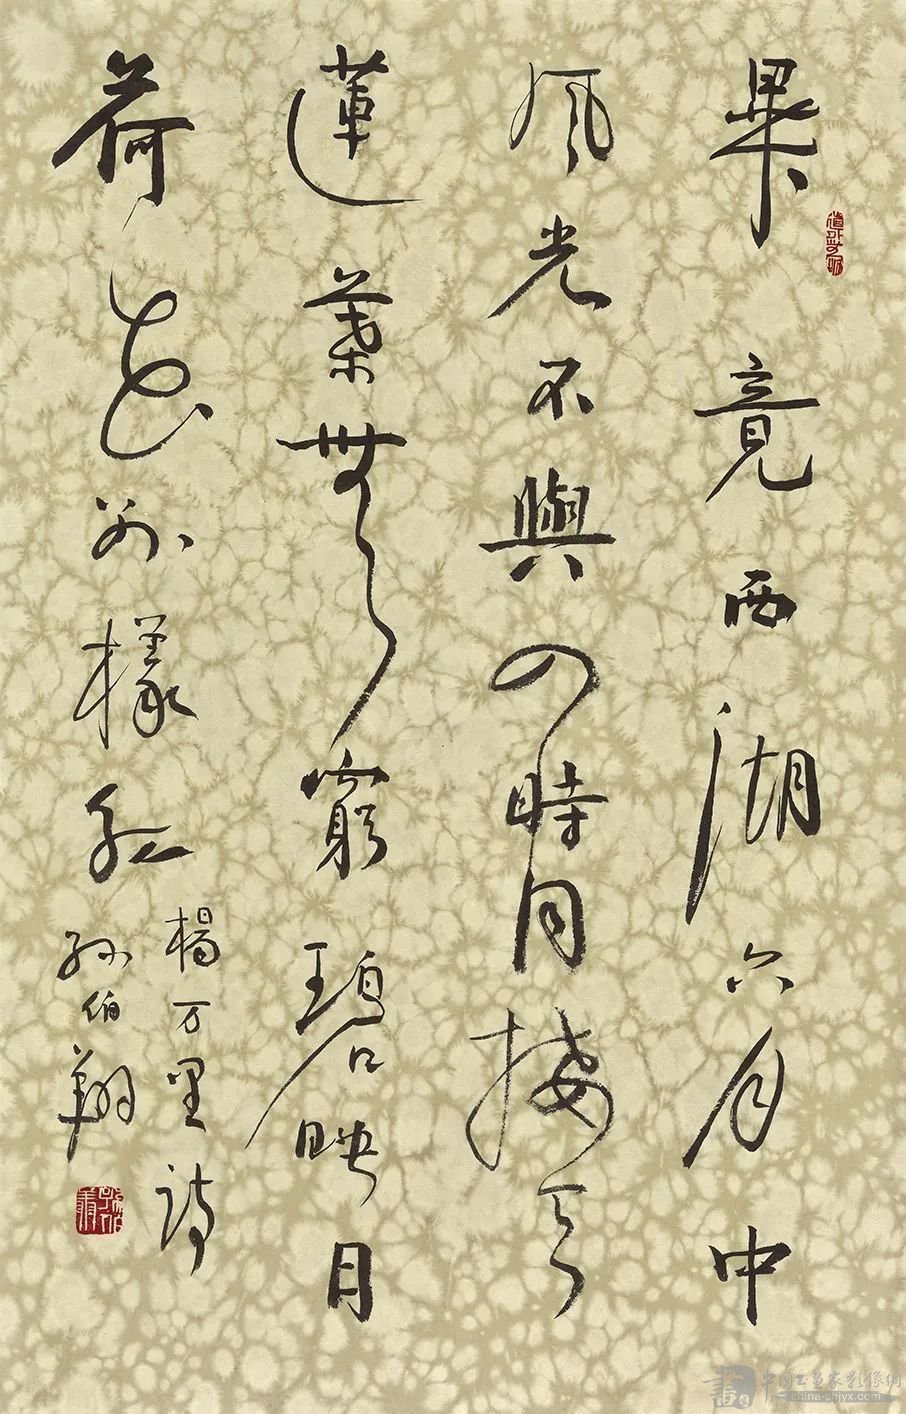 畢竟西湖六月中
風光不與四時同接天
蓮葉無窮碧映日
荷花別樣紅
楊万里詩
孫伯翔
china-shjyx.com